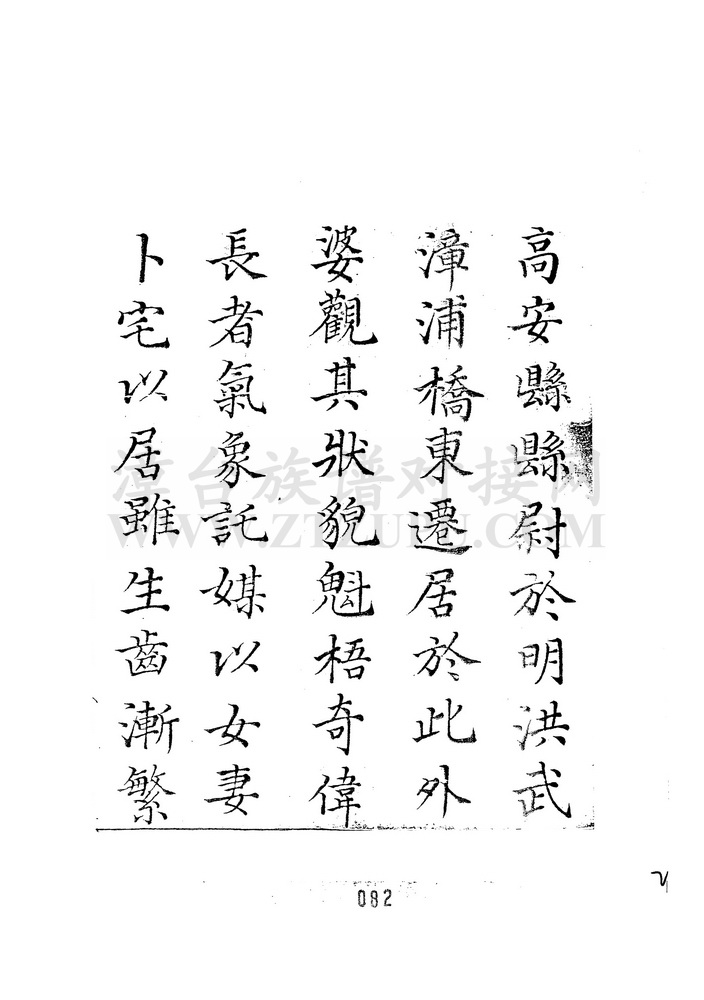 高安縣縣尉於明洪武
漳浦橋東遷居於此外
婆觀其狀貌魁梧奇偉
長者氣象託媒以女妻
卜宅以居雖生齒漸繁
漳台族谱对接网
WWW.ZTZUPU.COM
082